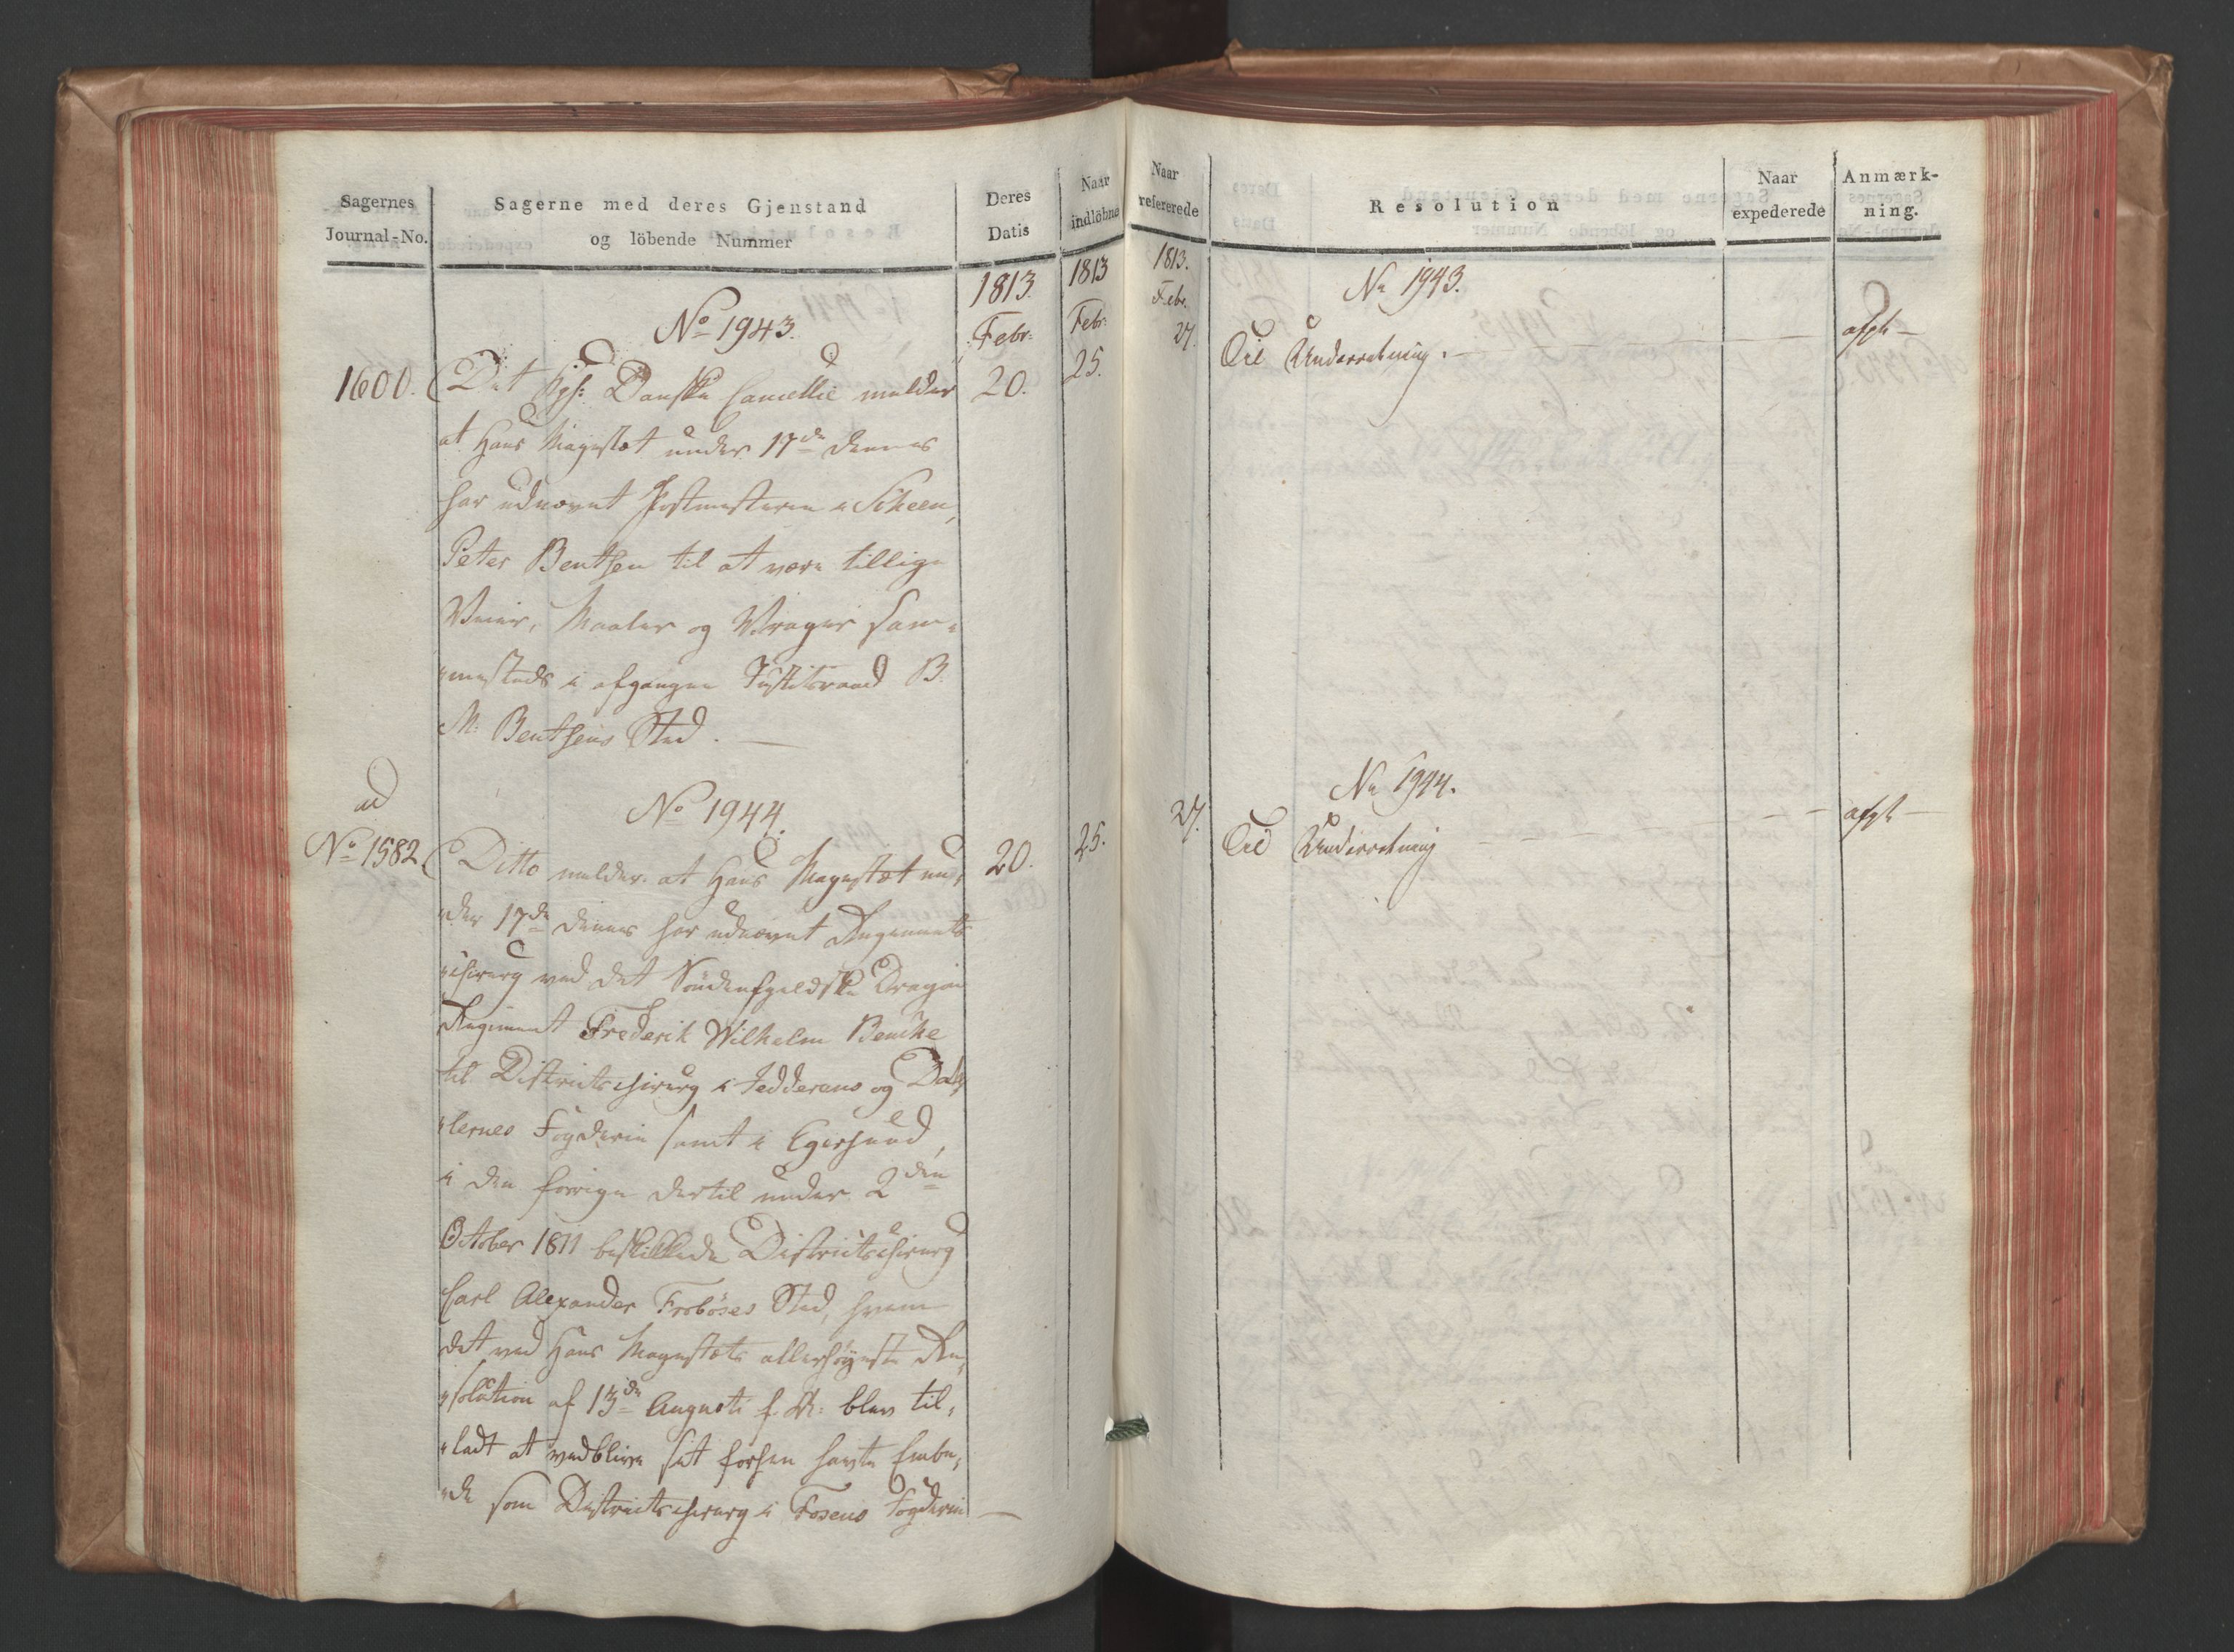 Sagernes
Journal-No.
Sagerne med deres Gjenstand
og löbende Nummer
Deres
Datis
Naar
indlöbne
1813.
Febr:
1813
Febr:
No 1943.
1600.
Det Kgl: Danske Cancellie melder
20.
25.
at Hans Majestæt under 17de dennes
har udnævnt Postmesteren i Scheen,
Peter Benthen til at være tillige
Veier, Maaler og Vrager sam-
"mesteds i afgangne Justitsraad B.
M: Benthens Sted. —
ad
No 1582.
No 1944.
Ditto melder at Hans Majestæt un-
20.
25.
"der 17de dennes har udnævnt Regiments
"chirurg ved det Söndenfjeldske Dragon
Regiment Frederik Wilhelm Bencke
til Districtschirurg i Jedderens og Da-
"lernes Fogderie samt i Egersund,
i den forrige dertil under 2den
October 1811 beskikkede Districtschirurg
Carl Alexander Froböses Sted, hvem
det ved Hans Majestæts allerhöyeste Re-
"solution af 13de Augusti f. A: blev til-
"ladt at vedblive sit forhen havte Embe-
"de som Districtschirurg i Fosens Fogderie —
Naar
refererede
Resolution
Naar
expederede
Anmærk-
ning.
1813.
Febr.
27.
No 1943.
Til Underretning. —
afgh —
No 1944.
27.
Til Underretning —
afgh —